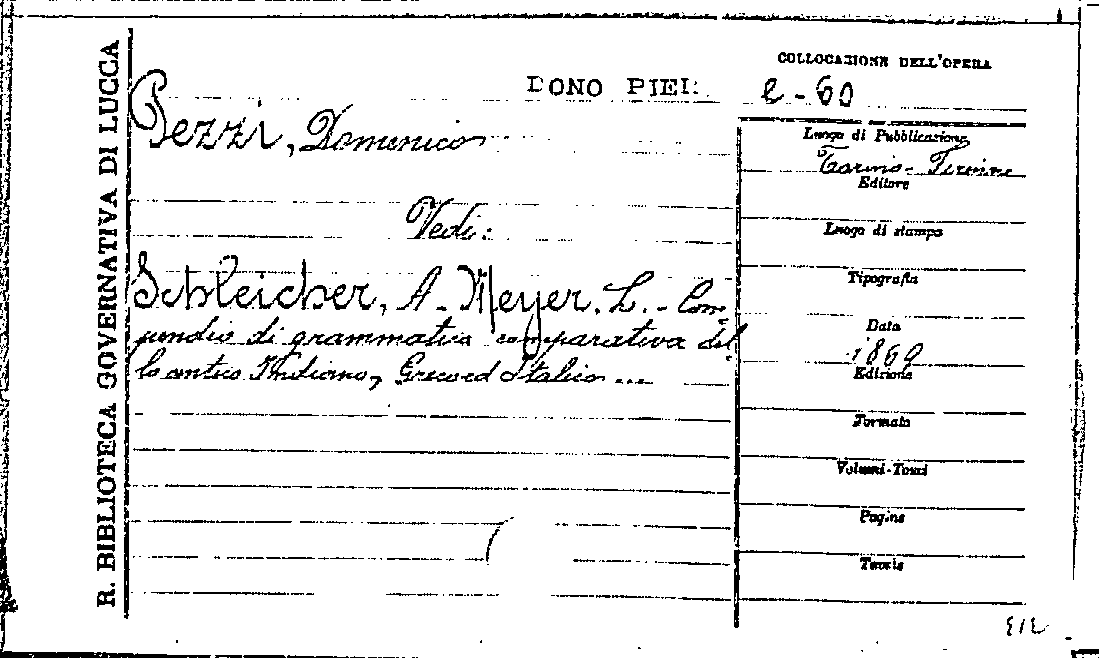 R. BIBLIOTECA GOVERNATIVA DI LUCCA
COLLOCAZIONE DELL'OPERA
DONO PIERI
e - 60
Pezzi, Domenico
Luogo di Pubblicazione
Torino - Firenze
Editore
Vedi:
Luogo di stampa
Schleicher, A - Meyer, L. - Com-
Tipografia
pendio di grammatica comparativa del-
Data
1869
lo antico Indiano, Greco ed Italico ...
Edizione
Formato
Volumi-Tomi
Pagine
Tavole